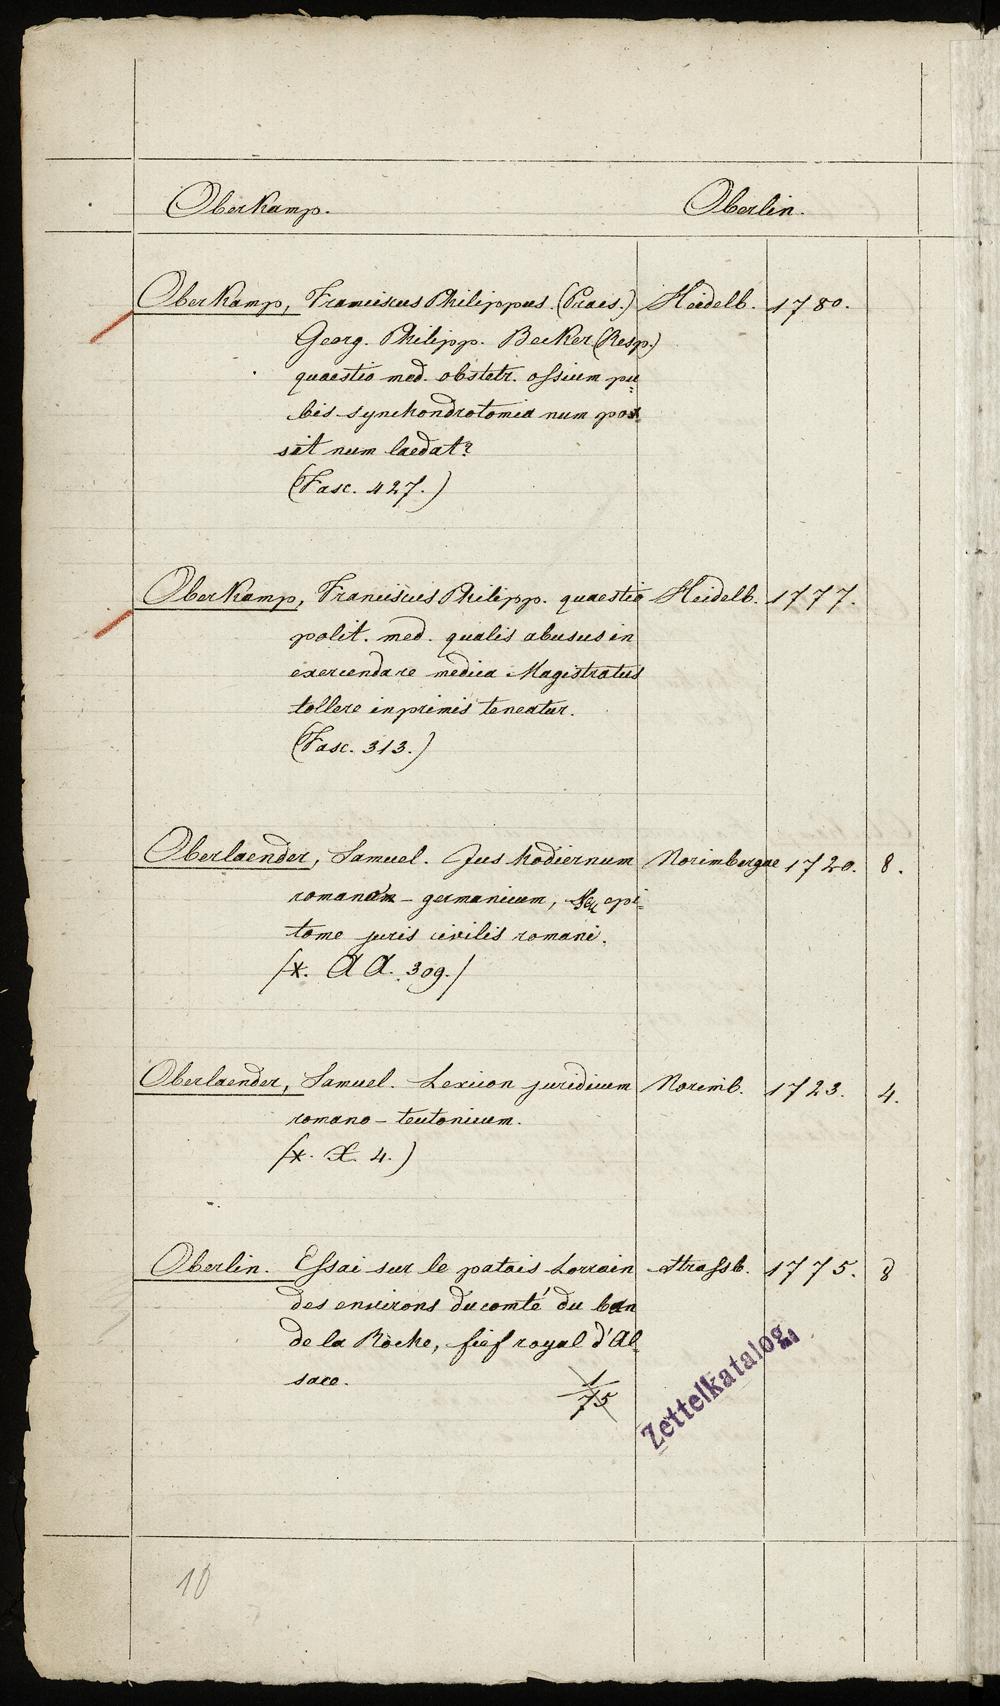 Oberkamp. Oberlin.
Oberkamp, Franciscus Philippus. (Praes.) Heidelb. 1780.
Georg. Philipp. Becker (Resp.)
quaestio med. obstetr. ossium pu=
bis synchondrotomia num pos=
sit num laedat?
(Fasc. 427.)
Oberkamp, Franciscus Philipp. quaestio Heidelb. 1777.
polit. med. qualis abusus in
exercenda re medica Magistratus
tollere inprimis teneatur.
(Fasc. 313.)
Oberlaender, Samuel. Jus hodiernum Norimbergae 1720. 8.
romano - germanicum, seu epi=
tome juris civilis romani.
(x. AA. 309.)
Oberlaender, Samuel. Lexicon juridicum Norimb. 1723. 4.
romano - teutonicum.
(x. X. 4.)
Oberlin. Essai sur le patois Lorrain Strassb. 1775. 8
des environs du comté du ban
de la Roche, fief royal d'Al=
sace.
1/75
Zettelkatalog.
10